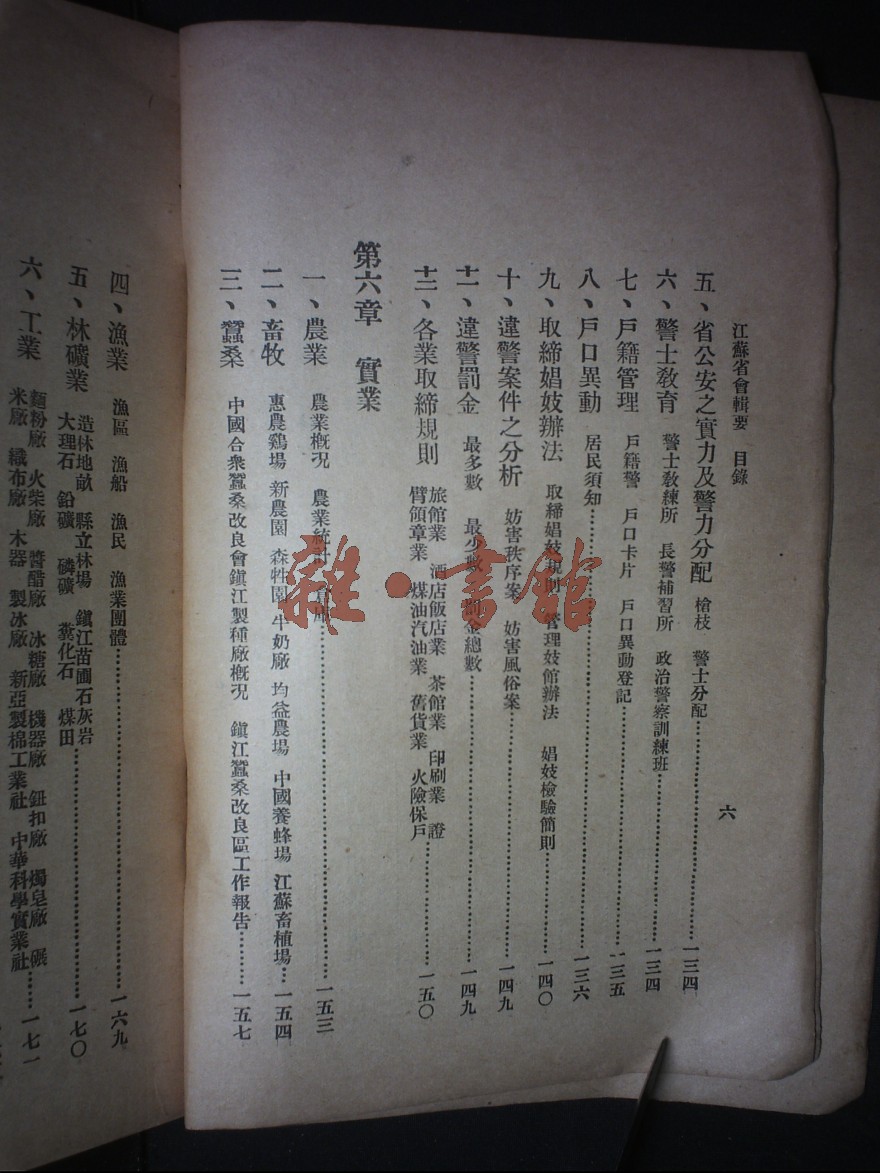 江蘇省會輯要　目錄　六
五、省公安之實力及警力分配　槍枝　警士分配……一三四
六、警士教育　警士教練所　長警補習所　政治警察訓練班……一三四
七、戶籍管理　戶籍警　戶口卡片　戶口異動登記……一三五
八、戶口異動　居民須知……一三六
九、取締娼妓辦法　取締娼妓規則　管理妓館辦法　娼妓檢驗簡則……一四〇
十、違警案件之分析　妨害秩序案　妨害風俗案……一四九
十一、違警罰金　最多數　最少數　罰金總數……一四九
十二、各業取締規則　旅館業　酒店飯店業　茶館業　印刷業　證
臂領章業　煤油汽油業　舊貨業　火險保戶……一五〇
第六章　實業
一、農業　農業概況　農業統計　……一五三
二、畜牧　惠農鷄場　新農園　森牲園　牛奶廠　均益農場　中國養蜂場　江蘇畜植場…一五四
三、蠶桑　中國合衆蠶桑改良會鎭江製種廠概況　鎭江蠶桑改良區工作報告……一五七
四、漁業　漁區　漁船　漁民　漁業團體……一六九
五、林礦業　造林地畝　縣立林場　鎭江苗圃石灰岩
大理石　鉛礦　磷礦　糞化石　煤田……一七〇
六、工業　麵粉廠　火柴廠　醬醋廠　冰糖廠　機器廠　鈕扣廠　燭皂廠　碾
米廠　織布廠　木器　製冰廠　新亞製棉工業社　中華科學實業社……一七一
雜·書館